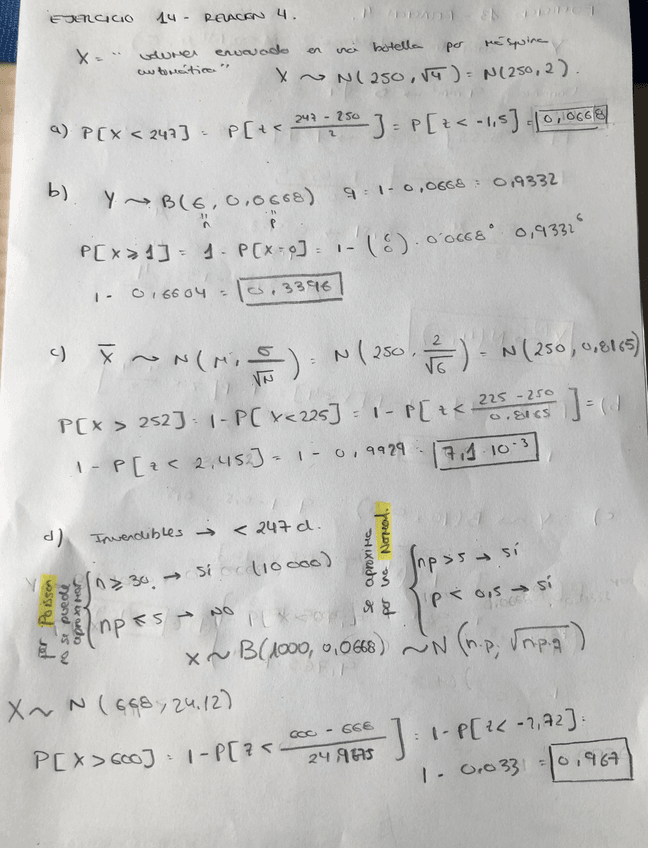 EJERCICIO 14 - RELACIÓN 4.
X = "volumen envasado en una botella por máquina
automática" X ~ N(250, √4) = N(250, 2).
a) P[X < 247] = P[z < (247 - 250)/2] = P[z < -1,5] = 0,0668
b) Y ~ B(6, 0,0668) q = 1 - 0,0668 = 0,9332
n p
P[X ≥ 1] = 1 - P[X = 0] = 1 - (6 0) · 0'0668⁰ · 0,9332⁶
1 - 0,6604 = 0,3396
c) X̄ ~ N(M, σ/√N) = N(250, 2/√6) = N(250, 0,8165)
P[X > 252] = 1 - P[X < 225] = 1 - P[z < (225 - 250)/0.8165] =
1 - P[z < 2,452] = 1 - 0,9929 = 7,1 · 10⁻³
d) Invendibles → < 247 cl.
por Poisson
no se puede
aproximar
n ≥ 30. → Sí (10000)
np ≤ 5 → NO
se aproxima
por una Normal.
np > 5 → sí
p < 0,5 → sí
X ~ B(1000, 0,0668) ~ N(n·p, √n·p·q)
X ~ N(668, 24.12)
P[X > 600] = 1 - P[z < (600 - 668)/24,9675] = 1 - P[z < -2,72] =
1 - 0,0033 = 0,967